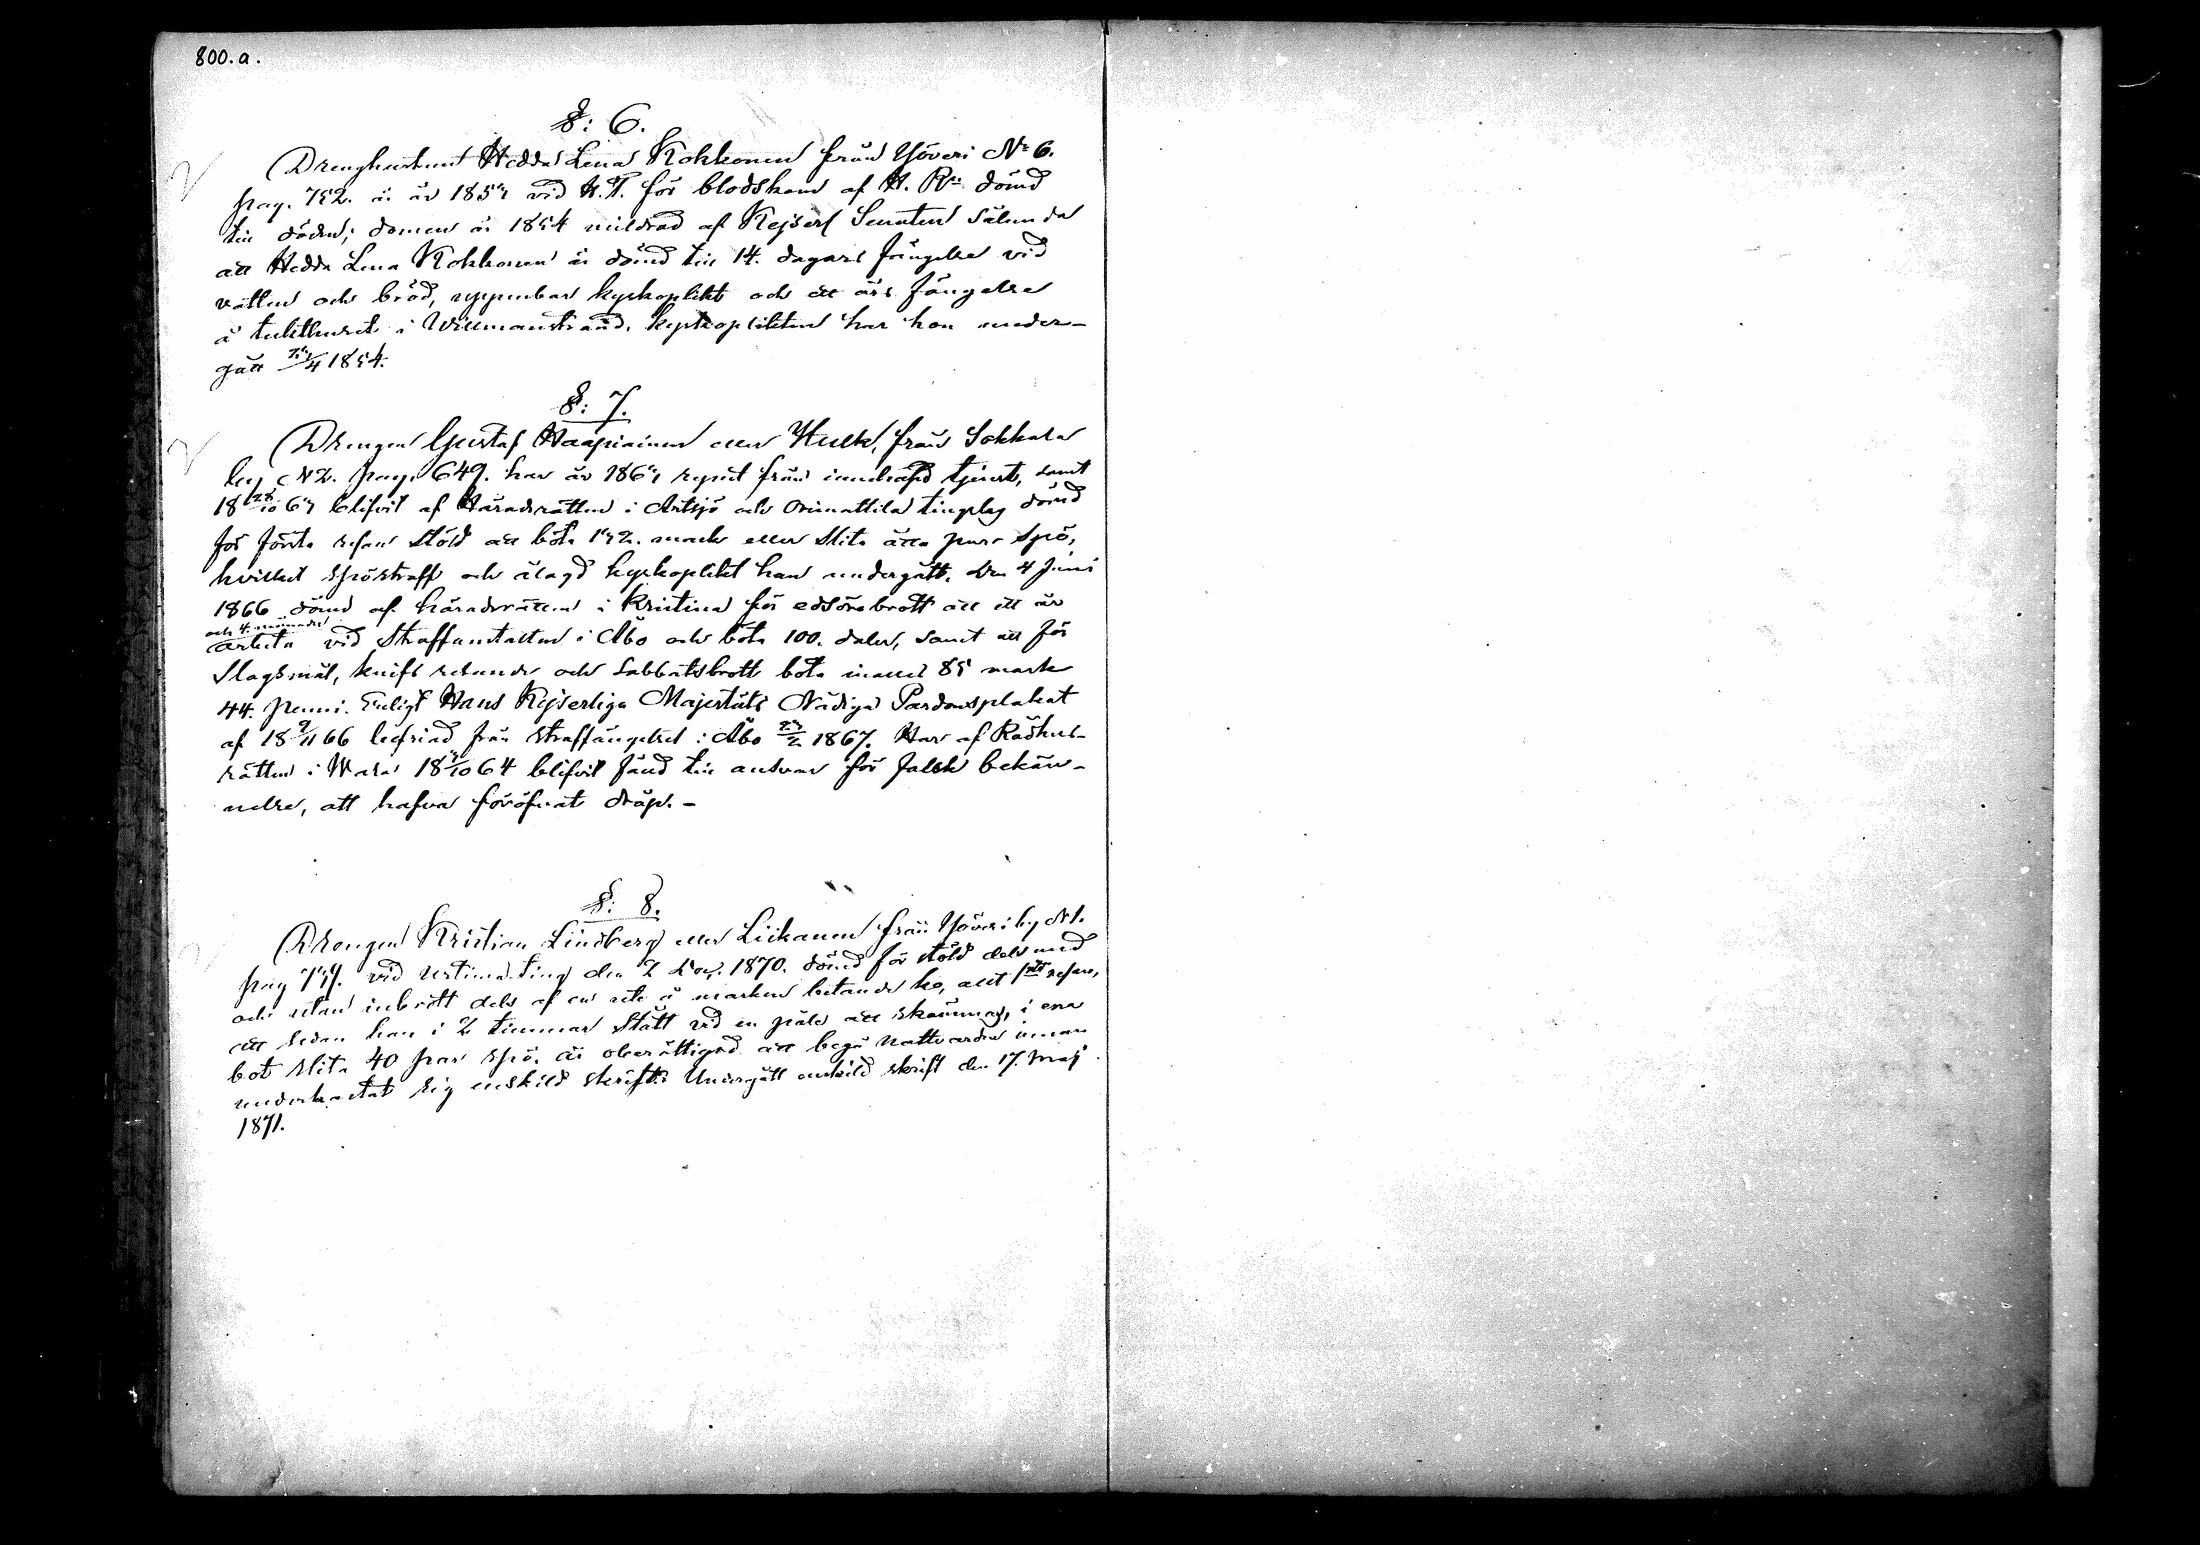 800.a.
§: 6.
Drenghustrun Hedda Lena Kokkonen från Yöveri No 6.
pag. 752. är år 1853 vid H.T. för blodskam af H. Rn. dömd
till döden; domen är 1854 mildrad af Kejserl Senaten sålunda
att Hedda Lena Kokkonen är dömd till 14. dagars fängelse vid
vatten och bröd, uppenbar kyrkoplikt och ett års fängelse
å tukthuset i Willmanstrand. Kyrkoplikten har hon under-
gått 1854.
§: 7.
Drengen Gustaf Haapiainen eller Hulk, från Sokkala
by N 2. pag. 649. har år 1865 rymt från innehafd tjenst, samt
18 28/10 65 blifvit af Häradsrätten i Artsjö och Orimattila tingslag dömd
för första resan stöld att böta 152. mark eller slita åtta par spö,
hvilket spöstraff och ålagd kyrkoplikt han undergått. Den 4 Juni
1866 dömd af häradsrätten i Kristina för edsörebrott att ett år
och 4. månader
arbeta vid Straffanstalten i Åbo och böta 100. daler, samt att för
slagsmål, knifs och sabbatsbrott böta 85 mark
44. penni. Enligt Hans Kejserliga Majestäts Nådiga Pardonsplakat
af 18 9/11 66 befriad från straffängelset i Åbo 1867. Har af Rådhus-
rätten i Wasa 18 /10 64 blifvit fänd till ansvar för falsk bekän-
nelse, att hafva föröfvat dråp. -
§: 8.
Drengen Kristian Lindberg eller Liikanen från Yöveri by N 1.
pag 757. vid urtima ting den 2 Nov. 1870. dömd för stöld dels med
och utan inbrott dels af en ute å marken betande ko, allt 1sta resan,
att sedan han i 2 timmar stått vid en påle att skämmas, i ena
bot slita 40 par spö. är oberättigad att begå nattvarden innan
underkastat sig enskild skrift. Undergått enskild skrift den 17. Maj
1871.